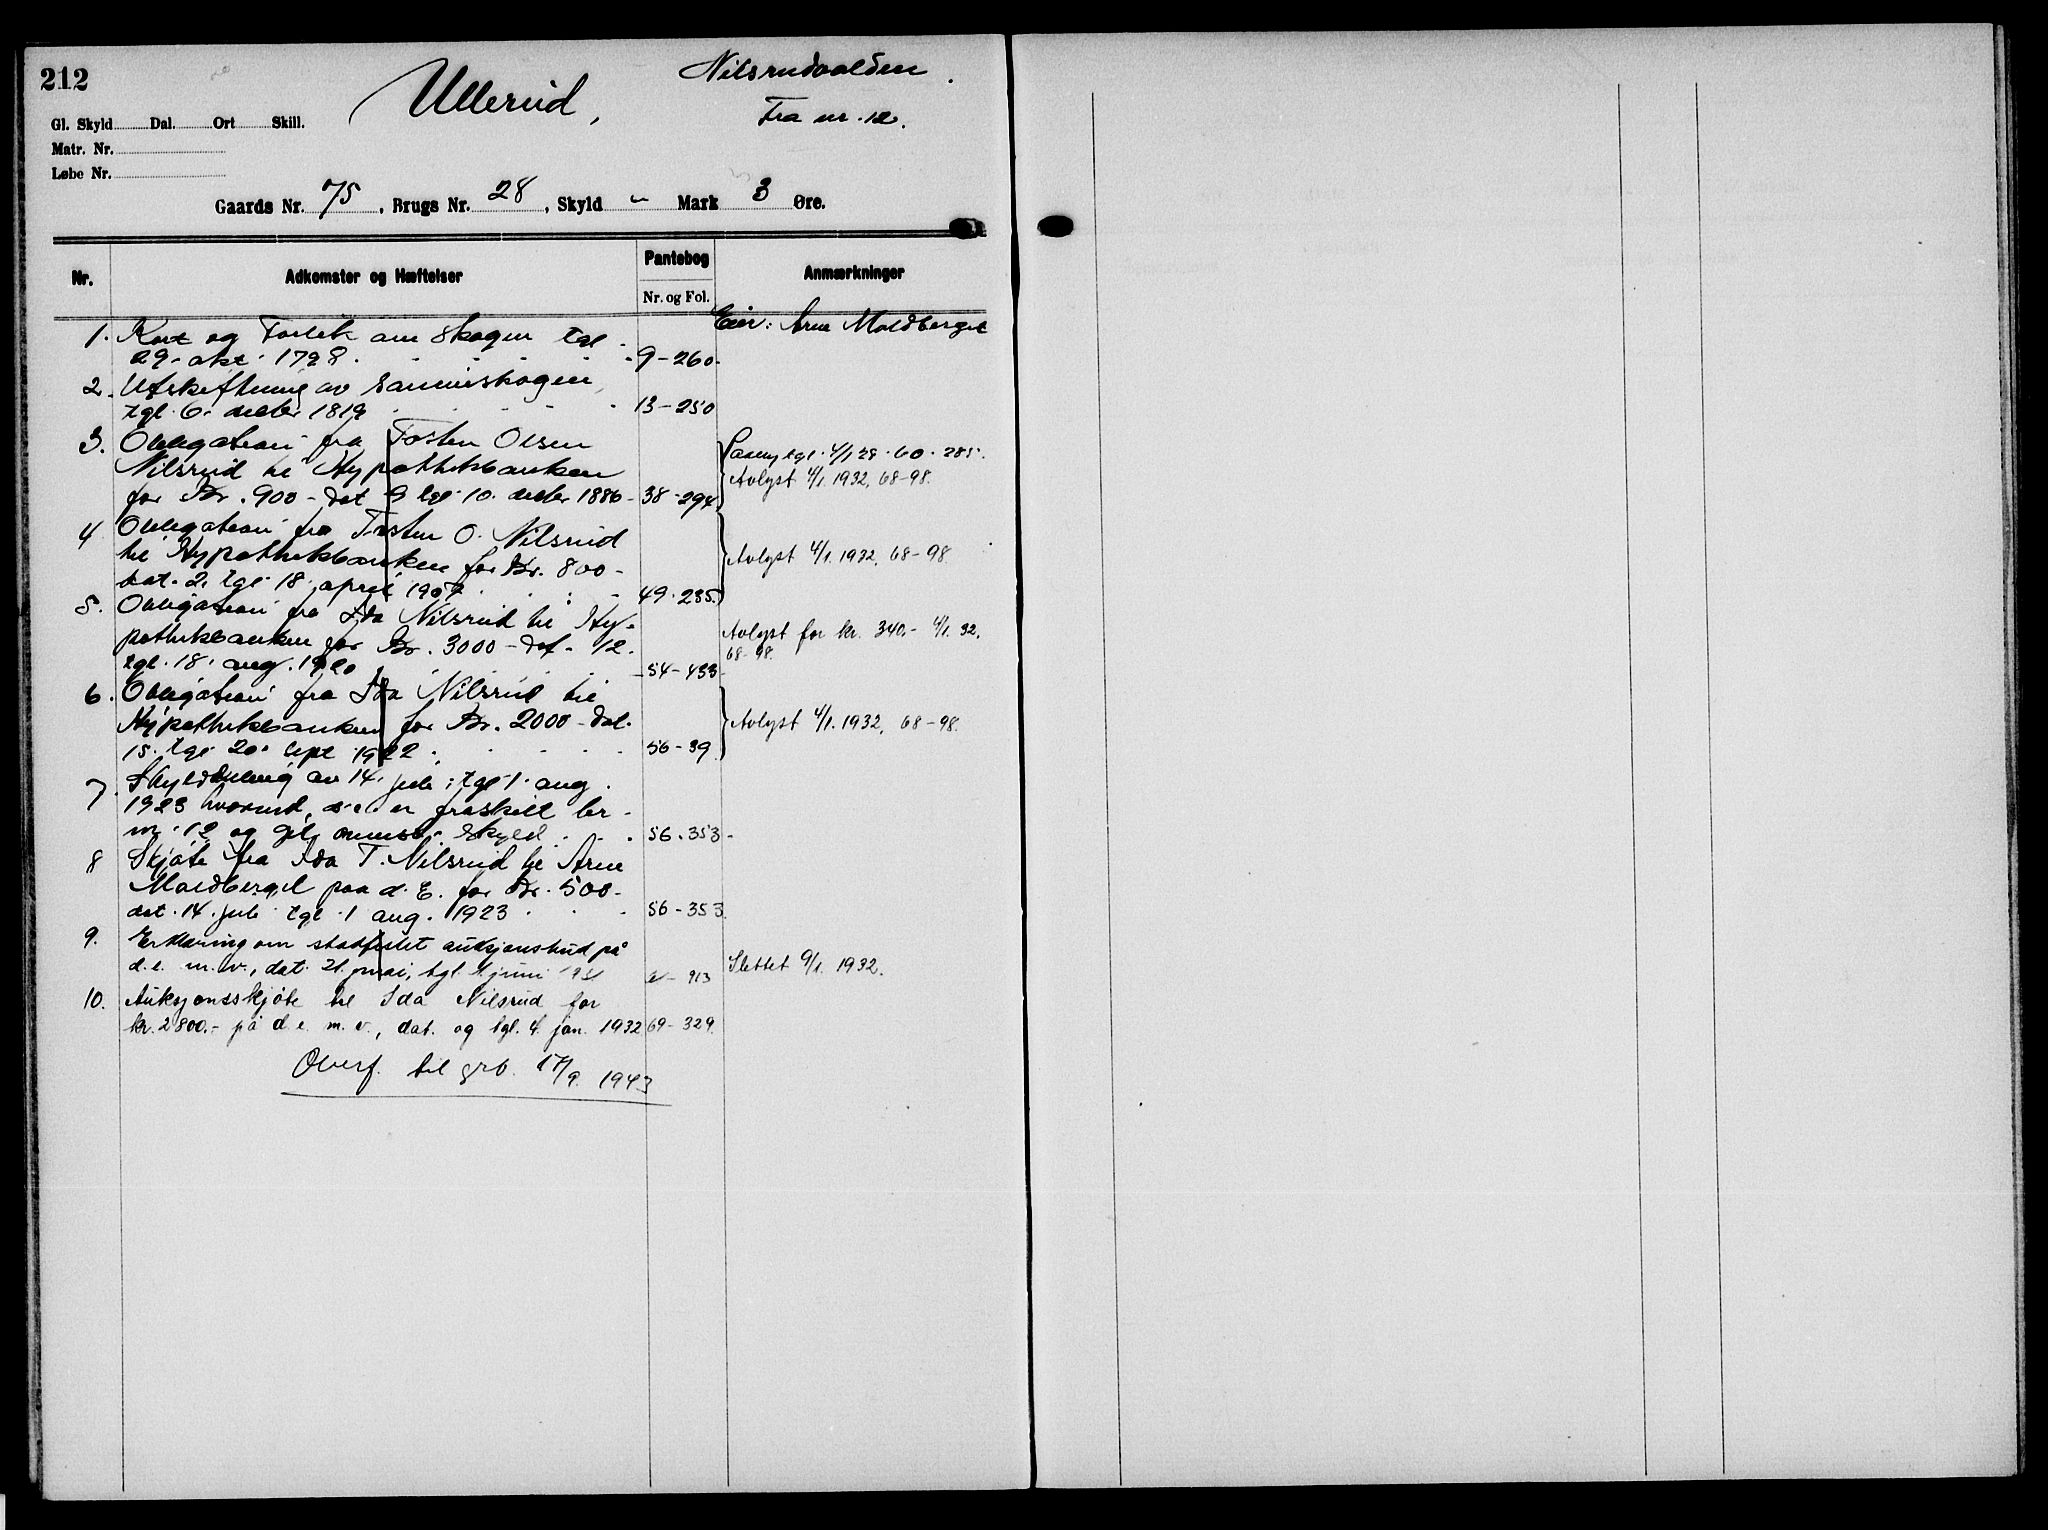 212
Ullerud,
Nilsrudvolden.
Fra nr. 12.
Gl. Skyld Dal. Ort Skill.
Matr. Nr.
Løbe Nr.
Gaards Nr. 75, Brugs Nr. 28, Skyld " Mark 3 Øre.
Nr. Adkomster og Hæftelser Pantebog Anmærkninger
Nr. og Fol.
Eier: Arne Moldberget
1. Kort og Forlik om skogen tgl.
29. okt. 1798. 9-260.
2. Utskiftning av sameieskogen,
tgl. 6. decbr. 1819 13-250
3. Obligation fra Tosten Olsen
Nilsrud til Hypothekbanken
for Kr. 900 - dat 9 tgl. 10. decbr 1886 - 38-294.
tgl. 4/1 28. 60. 285.
Avlyst 4/1. 1932, 68-98.
4 Obligation fra Tosten O. Nilsrud
til Hypothekbanken for Kr. 800-
dat. 2. tgl. 18. april 1907. 49.235.
Avlyst 4/1. 1932, 68-98
5. Obligation fra Ida Nilsrud til Hy-
pothekbanken for Kr. 3000 - dat. 1/2.
tgl. 18. aug. 1920 54-433
Avlyst for kr. 340.- 4/1. 32.
68-98.
6. Obligation fra Ida Nilsrud til
Hypothekbanken for Kr. 2000 - dat.
15. tgl. 20. sept. 1922. 56-39.
Avlyst 4/1. 1932, 68-98.
7. Skylddeling av 14. juli; tgl. 1. aug.
1923 hvorved d.e. er fraskilt br.
nr. 12 og git ommeldt skyld. 56.353-
8 Skjøte fra Ida T. Nilsrud til Arne
Moldberget paa d. E. for Kr. 500-
dat. 14. juli tgl. 1 aug. 1923 56-353.
9. Erklæring om stadfestet auksjonsbud på
d.e. m.v., dat. 21. mai, tgl. juni 913
Slettet 9/1. 1932.
10. Auksjonsskjøte til Ida Nilsrud for
kr. 2800.- på d.e. m.v., dat. og tgl. 4. jan. 1932 69-329.
Overf. til grb. 17/9. 1943